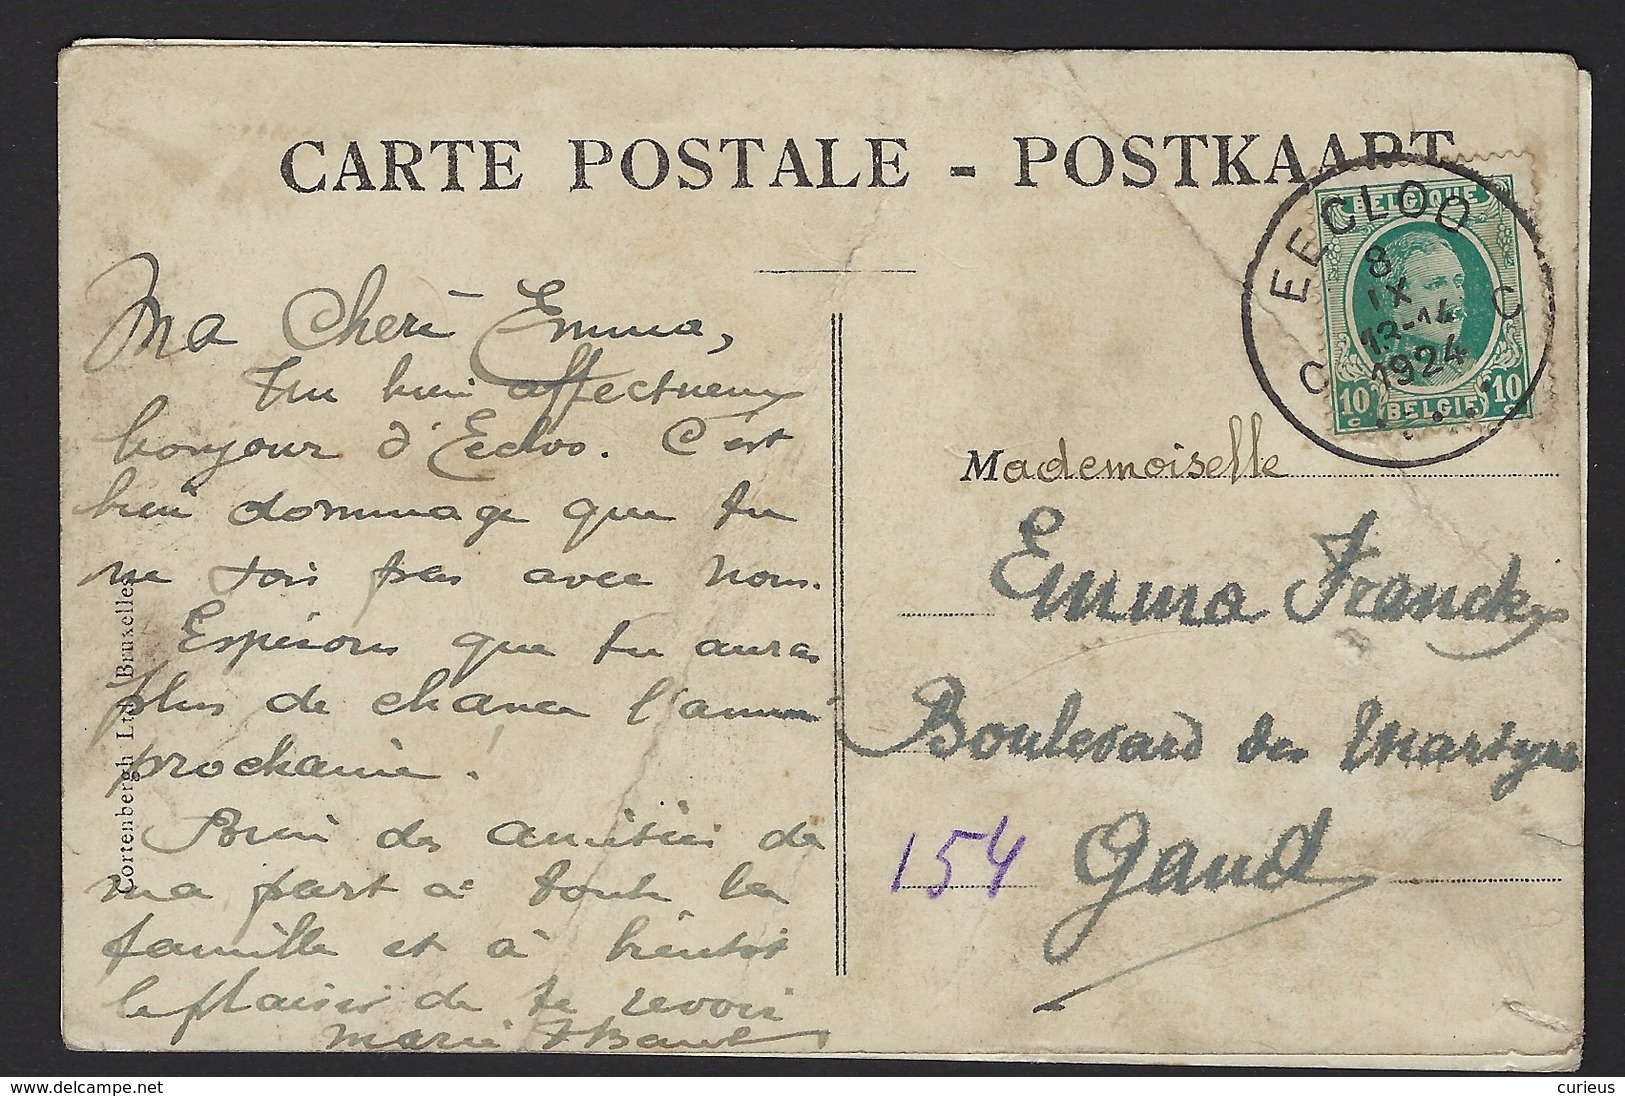 CARTE POSTALE - POSTKAART
BELGIQUE
EECLOO
8
IX
13-14
1924
C C
10 c BELGIE 10 c
Ma Cherè Emma,
Un bien affectueux
bonjour d'Eecloo. C'est
bien dommage que tu
ne sois pas avec nous.
Espérons que tu auras
plus de chance l'année
prochaine!
Bien des amitiés de
ma part à toute la
famille et à bientôt
le plaisir de te revoir
Marie
Mademoiselle
Emma Franck
Boulevard des Martyrs
154 Gand
Cortenbergh Ltd Bruxelles
delcampe.net
curieus